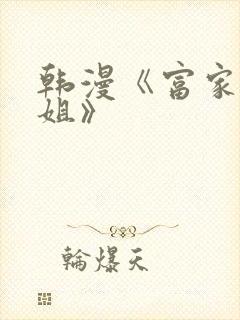 韩漫《富家
姐》
輪爆天